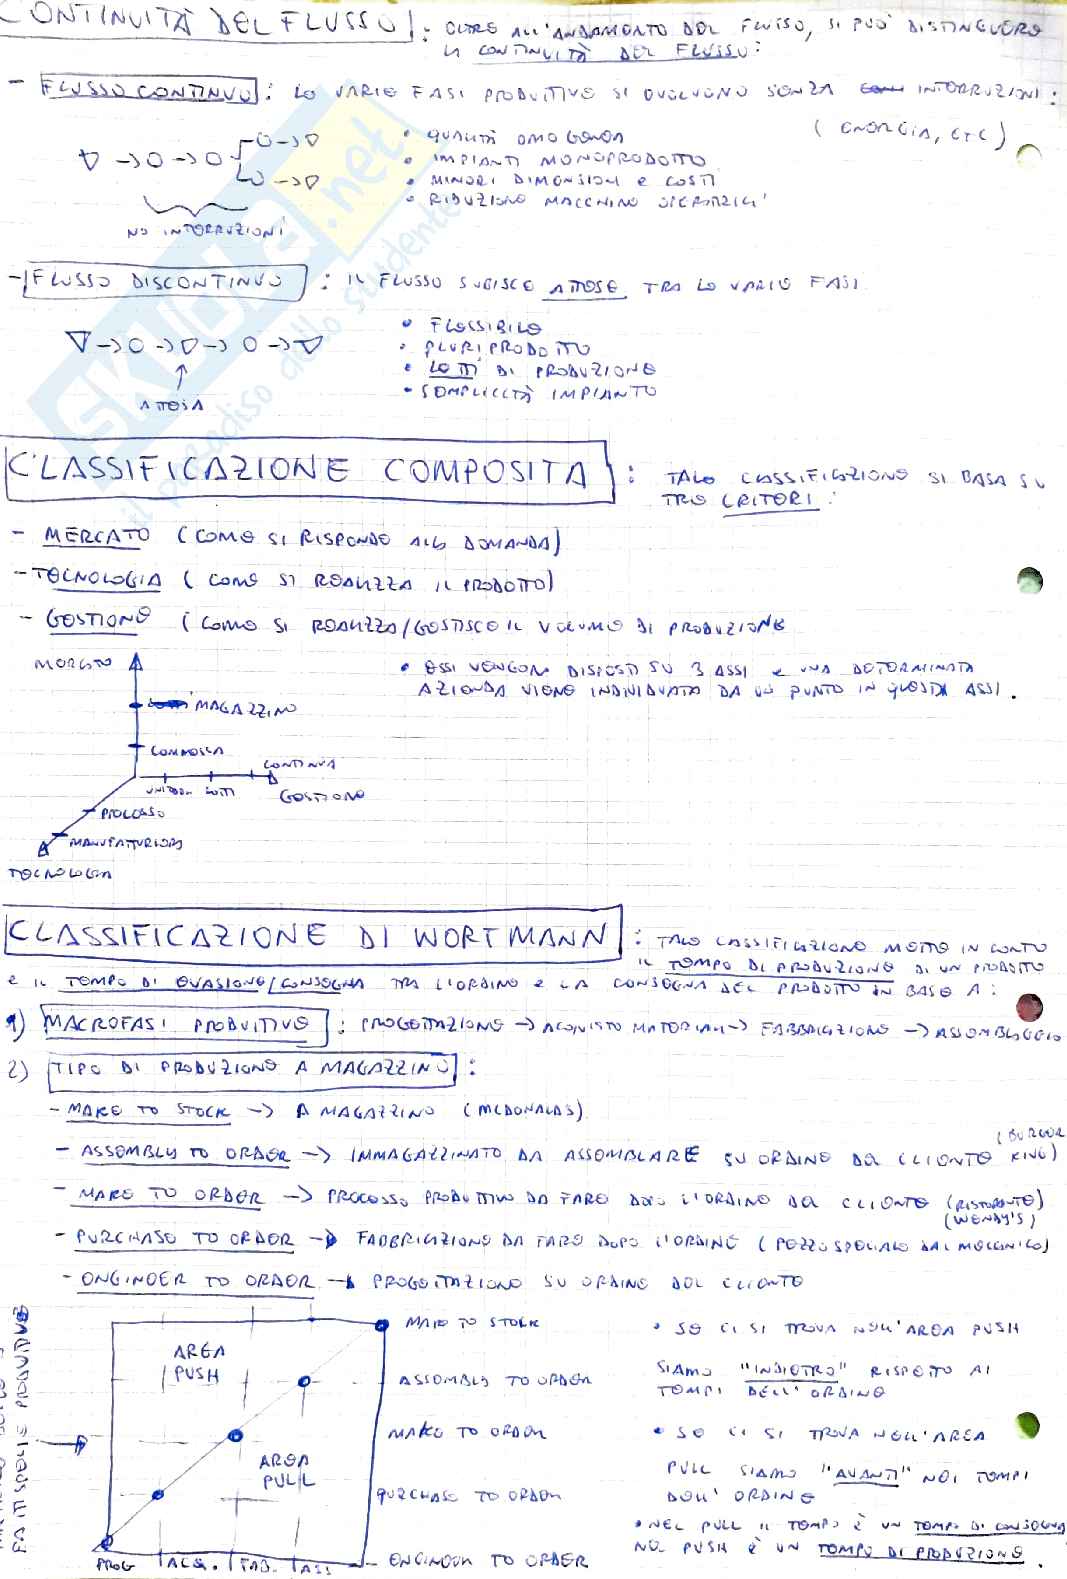 CONTINUITÀ DEL FLUSSO : OLTRE ALL'ANDAMENTO DEL FLUSSO, SI PUÒ DISTINGUERE
LA CONTINUITÀ DEL FLUSSO:
- FLUSSO CONTINUO : LE VARIE FASI PRODUTTIVE SI EVOLVONO SENZA INTERRUZIONI:
(ENERGIA, ETC)
• QUALITÀ OMOGENEA
• IMPIANTI MONOPRODOTTO
• MINORI DIMENSIONI E COSTI
• RIDUZIONE MACCHINE OPERATRICI
NO INTERRUZIONI
- FLUSSO DISCONTINUO : IL FLUSSO SUBISCE ATTESE TRA LE VARIE FASI
• FLESSIBILE
• PLURIPRODOTTO
• LOTTI DI PRODUZIONE
• SEMPLICITÀ IMPIANTO
ATTESA
SKUOLA.net
il paradiso dello studente
CLASSIFICAZIONE COMPOSITA : TALE CLASSIFICAZIONE SI BASA SU
TRE CRITERI:
- MERCATO (COME SI RISPONDE ALLA DOMANDA)
- TECNOLOGIA (COME SI REALIZZA IL PRODOTTO)
- GESTIONE (COME SI REALIZZA/GESTISCE IL VOLUME DI PRODUZIONE
MERCATO
• ESSI VENGONO DISPOSTI SU 3 ASSI E UNA DETERMINATA
AZIENDA VIENE INDIVIDUATA DA UN PUNTO IN QUESTI ASSI.
MAGAZZINO
COMMESSA
CONTINUA
LOTTI
GESTIONE
PROCESSO
TECNOLOGIA
CLASSIFICAZIONE DI WORTMANN : TALE CLASSIFICAZIONE METTE IN CONTO
IL TEMPO DI PRODUZIONE DI UN PRODOTTO
E IL TEMPO DI EVASIONE/CONSEGNA TRA L'ORDINE E LA CONSEGNA DEL PRODOTTO IN BASE A:
1) MACROFASI PRODUTTIVE : PROGETTAZIONE → ACQUISTO MATERIALI → FABBRICAZIONE → ASSEMBLAGGIO
2) TIPO DI PRODUZIONE A MAGAZZINO :
- MAKE TO STOCK → A MAGAZZINO (MCDONALDS)
- ASSEMBLY TO ORDER → IMMAGAZZINATO DA ASSEMBLARE SU ORDINE DEL CLIENTE (BURGER KING)
- MAKE TO ORDER → PROCESSO PRODUTTIVO DA FARE DOPO L'ORDINE DEL CLIENTE (RISTORANTE)
(WENDY'S)
- PURCHASE TO ORDER → FABBRICAZIONE DA FARE DOPO L'ORDINE (PEZZO SPECIALE DAL MECCANICO)
- ENGINEER TO ORDER → PROGETTAZIONE SU ORDINE DEL CLIENTE
AREA
PUSH
AREA
PULL
MAKE TO STOCK
ASSEMBLY TO ORDER
MAKE TO ORDER
PURCHASE TO ORDER
ENGINEER TO ORDER
PROG ACQ. FAB. ASS
• SE CI SI TROVA NELL'AREA PUSH
SIAMO "INDIETRO" RISPETTO AI
TEMPI DELL'ORDINE
• SE CI SI TROVA NELL'AREA
PULL SIAMO "AVANTI" NEI TEMPI
DELL'ORDINE
• NEL PULL IL TEMPO È UN TEMPO DI CONSEGNA
NEL PUSH È UN TEMPO DI PRODUZIONE.